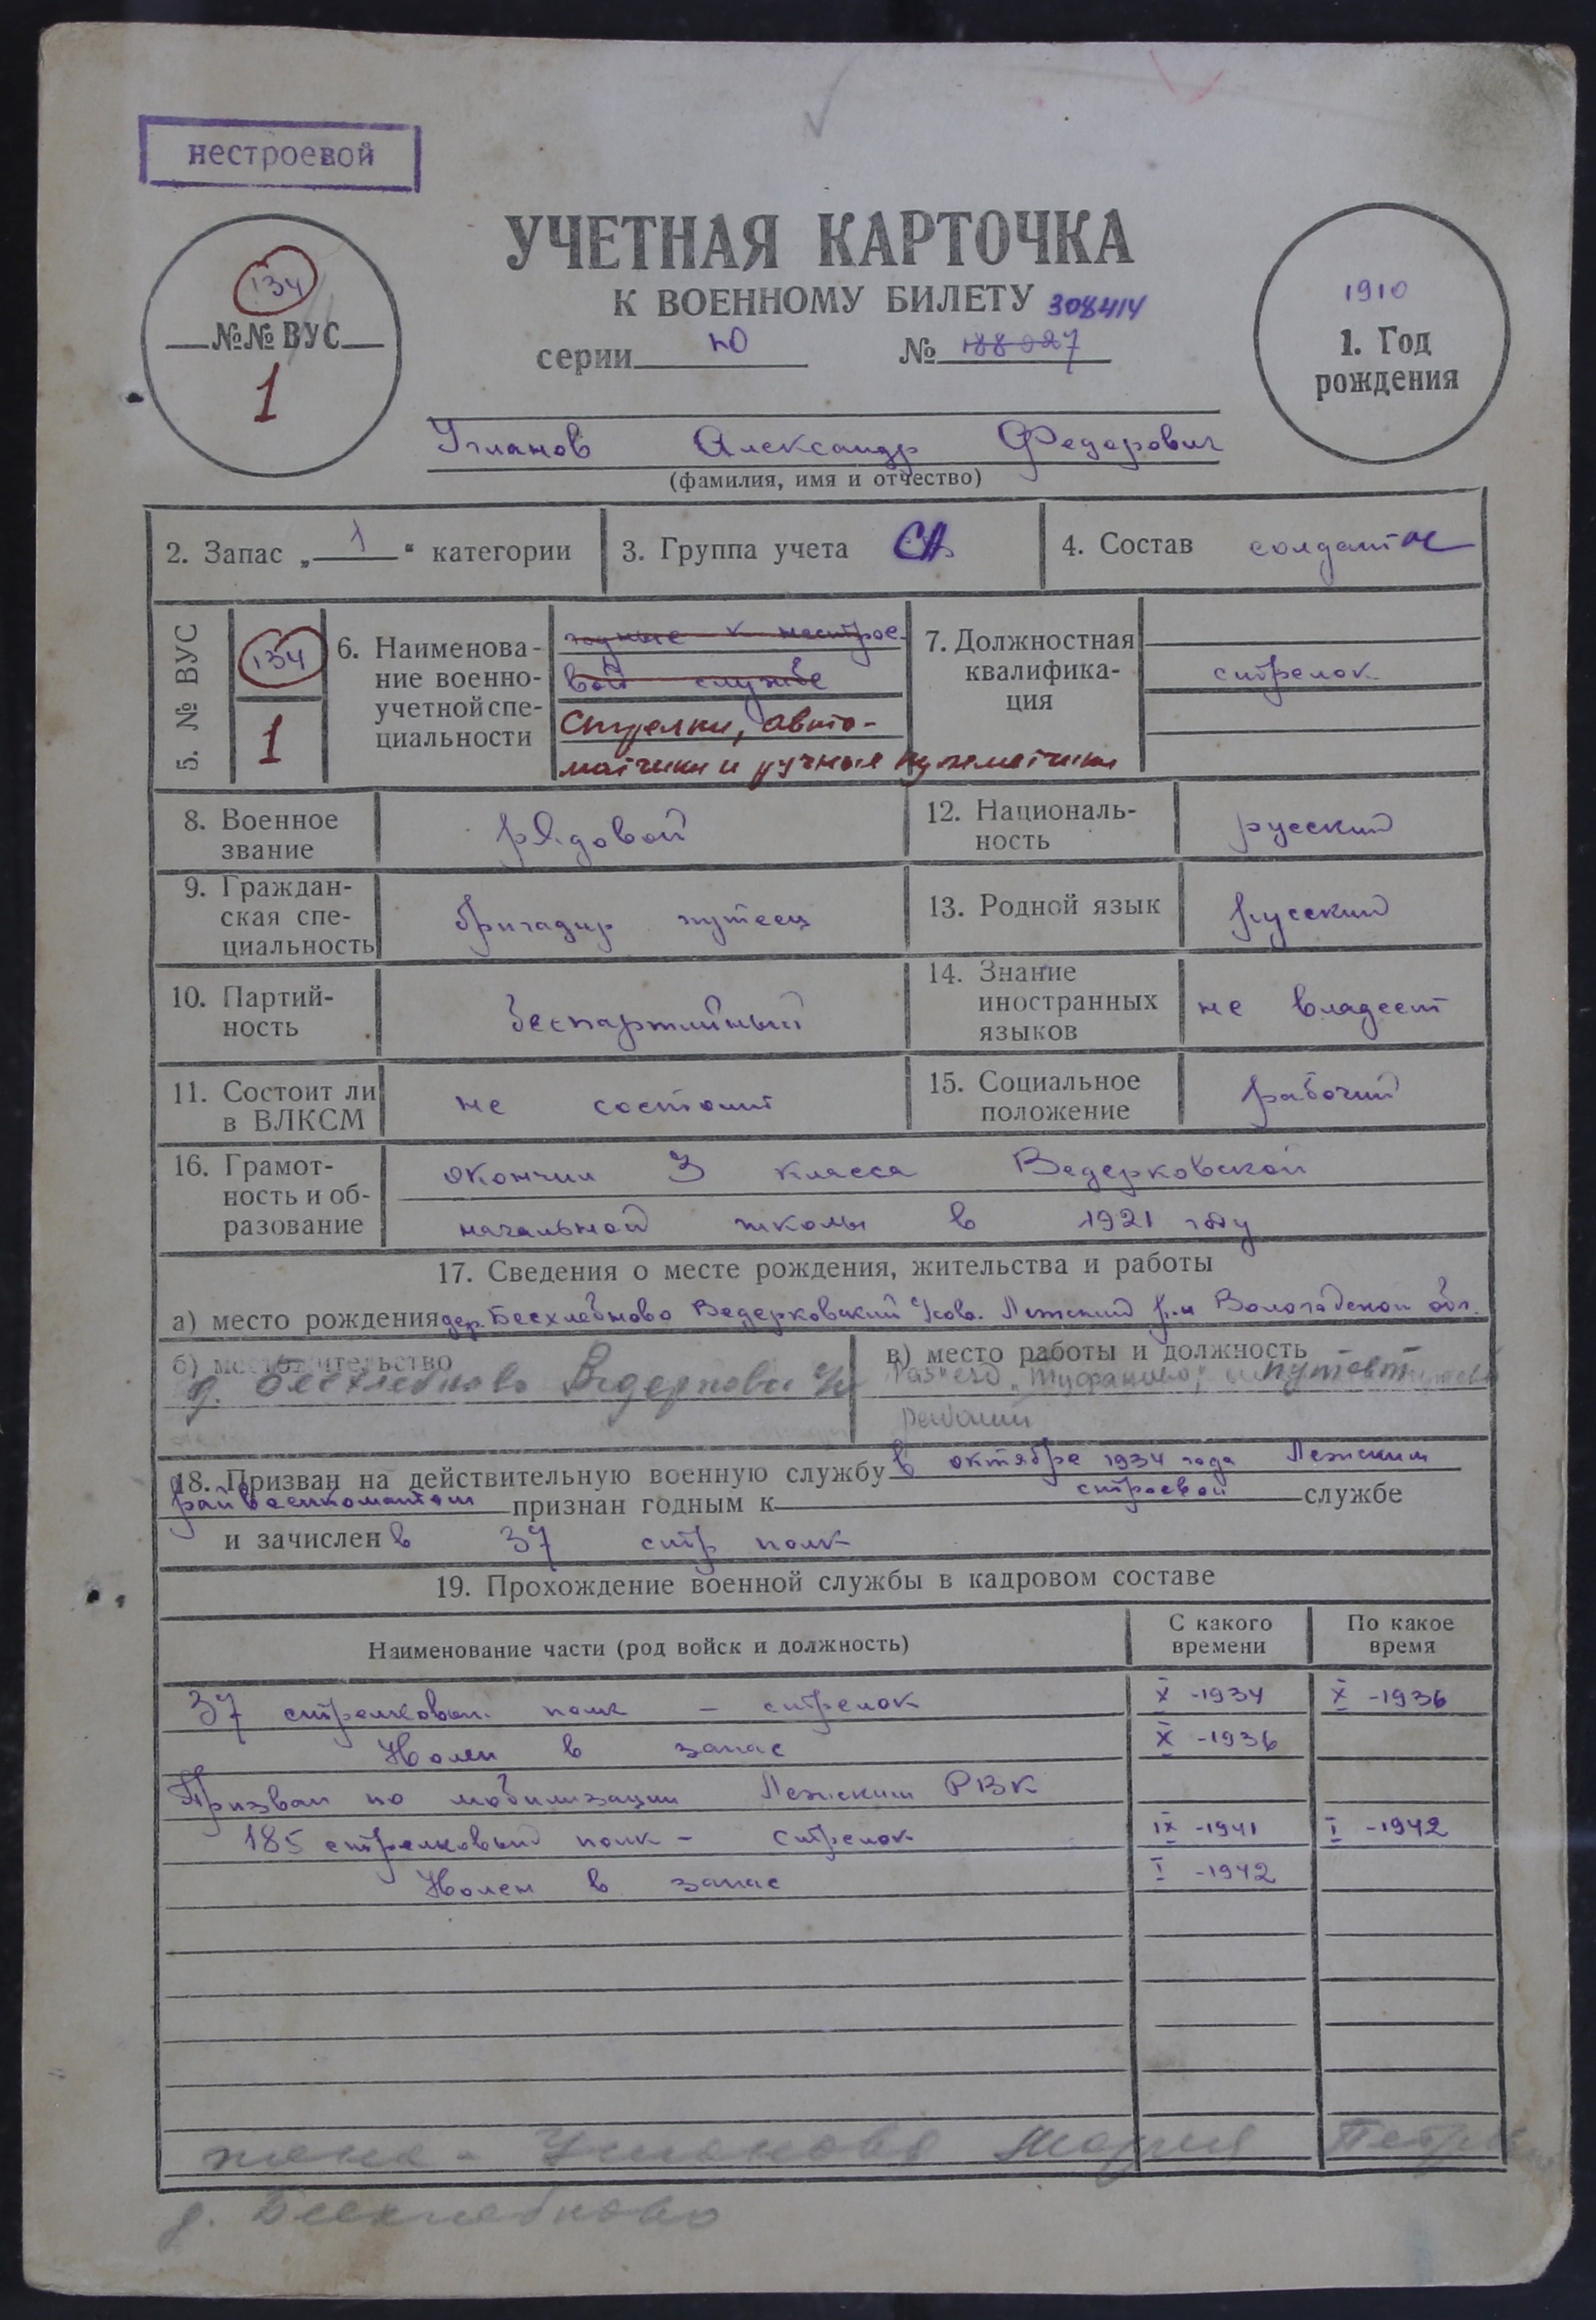 нестроевой
УЧЕТНАЯ КАРТОЧКА
К ВОЕННОМУ БИЛЕТУ 308414
серии НО № 188027
134
№№ ВУС
1
1910
1. Год
рождения
Угланов Александр Федорович
(фамилия, имя и отчество)
2. Запас „ 1 “ категории
3. Группа учета СА
4. Состав солдат
5. № ВУС
134
1
6. Наименова-
ние военно-
учетной спе-
циальности
годные к нестрое-
вой службе
Стрелки, авто-
матчики и ручные пулеметчики
7. Должностная
квалифика-
ция
стрелок
8. Военное
звание
рядовой
12. Националь-
ность
русский
9. Граждан-
ская спе-
циальность
бригадир путеец
13. Родной язык
русский
10. Партий-
ность
беспартийный
14. Знание
иностранных
языков
не владеет
11. Состоит ли
в ВЛКСМ
не состоит
15. Социальное
положение
рабочий
16. Грамот-
ность и об-
разование
окончил 3 класса Ведерковской
начальной школы в 1921 году
17. Сведения о месте рождения, жительства и работы
а) место рождения дер. Бесхлебново Ведерковский с/сов. Лежский р-н Вологодской обл.
б) местожительство
д. Бесхлебново
в) место работы и должность
Разъезд „Туфаново“
рабочий
18. Призван на действительную военную службу в октябре 1934 года Лежским
райвоенкоматом признан годным к строевой службе
и зачислен в 37 стр полк
19. Прохождение военной службы в кадровом составе
Наименование части (род войск и должность)
С какого
времени
По какое
время
37 стрелковый полк – стрелок X -1934 X -1936
Уволен в запас X -1936
Призван по мобилизации Лежским РВК
185 стрелковый полк – стрелок IX -1941 I -1942
Уволен в запас I -1942
жена - Угланова Мария Петровна
д. Бесхлебново